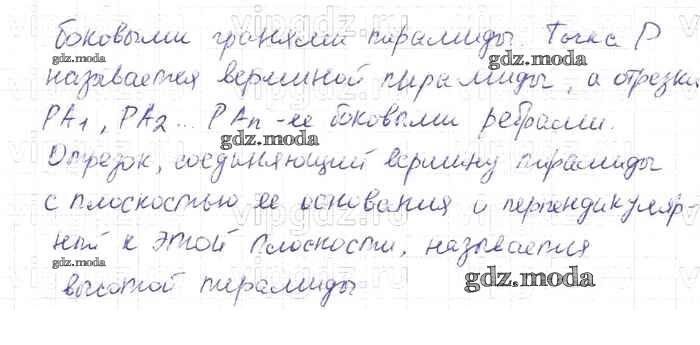 боковыми гранями пирамиды. Точка P
называется вершиной пирамиды, а отрезки
PA₁, PA₂... PAn - ее боковыми ребрами.
Отрезок, соединяющий вершину пирамиды
с плоскостью ее основания и перпендикуляр-
ный к этой плоскости, называется
высотой пирамиды
gdz.moda
gdz.moda
gdz.moda
gdz.moda
gdz.moda
gdz.moda
gdz.moda
gdz.moda